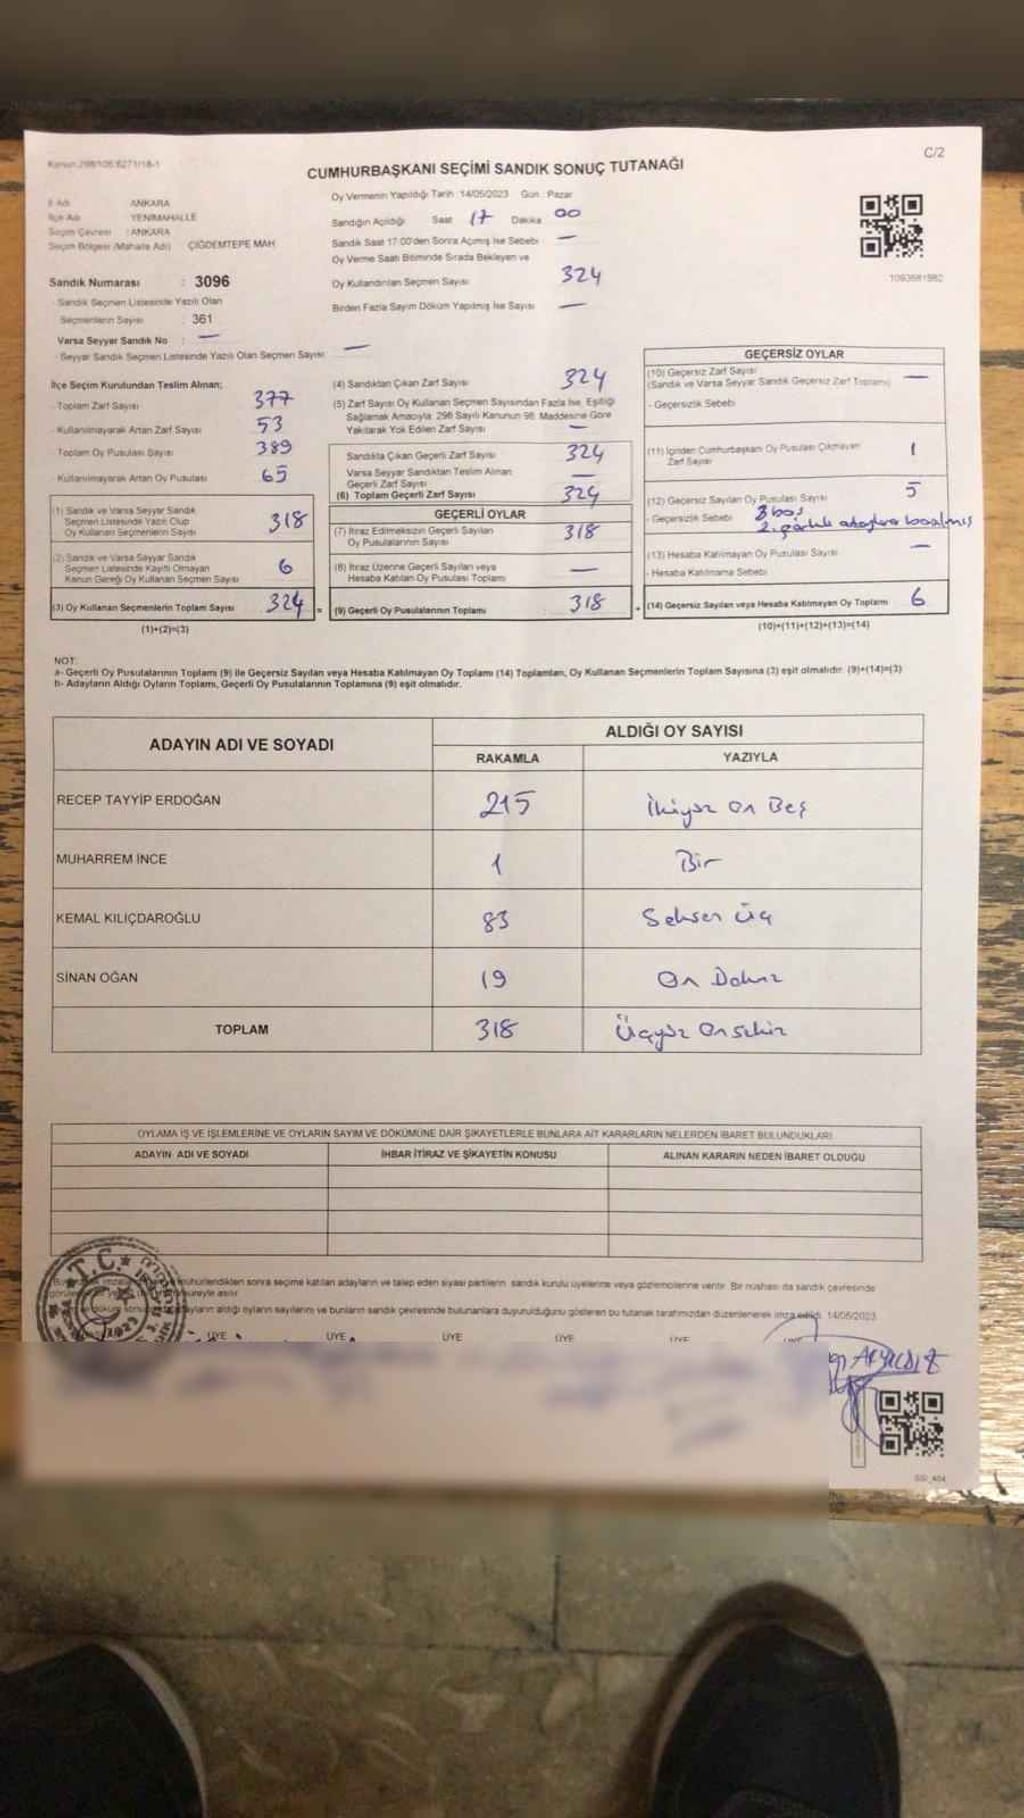 Kanun:298/105 6271/18-1
C/2
CUMHURBAŞKANI SEÇİMİ SANDIK SONUÇ TUTANAĞI
İl Adı : ANKARA
İlçe Adı : YENİMAHALLE
Seçim Çevresi : ANKARA
Seçim Bölgesi (Mahalle Adı) : ÇİĞDEMTEPE MAH.
Sandık Numarası : 3096
- Sandık Seçmen Listesinde Yazılı Olan
Seçmenlerin Sayısı : 361
Varsa Seyyar Sandık No : —
- Seyyar Sandık Seçmen Listesinde Yazılı Olan Seçmen Sayısı —
Oy Vermenin Yapıldığı Tarih : 14/05/2023 Gün : Pazar
Sandığın Açıldığı Saat 17 Dakika 00
Sandık Saat 17:00'den Sonra Açılmış İse Sebebi —
Oy Verme Saati Bitiminde Sırada Bekleyen ve
Oy Kullandırılan Seçmen Sayısı 324
Birden Fazla Sayım Döküm Yapılmış İse Sayısı —
1093681982
İlçe Seçim Kurulundan Teslim Alınan;
- Toplam Zarf Sayısı 377
- Kullanılmayarak Artan Zarf Sayısı 53
- Toplam Oy Pusulası Sayısı 389
- Kullanılmayarak Artan Oy Pusulası 65
(1) Sandık ve Varsa Seyyar Sandık
Seçmen Listesinde Yazılı Olup
Oy Kullanan Seçmenlerin Sayısı 318
(2) Sandık ve Varsa Seyyar Sandık
Seçmen Listesinde Kayıtlı Olmayan
Kanun Gereği Oy Kullanan Seçmen Sayısı 6
(3) Oy Kullanan Seçmenlerin Toplam Sayısı 324 =
(1)+(2)=(3)
(4) Sandıktan Çıkan Zarf Sayısı 324
(5) Zarf Sayısı Oy Kullanan Seçmen Sayısından Fazla İse, Eşitliği
Sağlamak Amacıyla 298 Sayılı Kanunun 98. Maddesine Göre
Yakılarak Yok Edilen Zarf Sayısı —
Sandıkta Çıkan Geçerli Zarf Sayısı 324
Varsa Seyyar Sandıktan Teslim Alınan
Geçerli Zarf Sayısı —
(6) Toplam Geçerli Zarf Sayısı 324
GEÇERLİ OYLAR
(7) İtiraz Edilmeksizin Geçerli Sayılan
Oy Pusulalarının Sayısı 318
(8) İtiraz Üzerine Geçerli Sayılan veya
Hesaba Katılan Oy Pusulası Toplamı —
(9) Geçerli Oy Pusulalarının Toplamı : 318 +
GEÇERSİZ OYLAR
(10) Geçersiz Zarf Sayısı —
(Sandık ve Varsa Seyyar Sandık Geçersiz Zarf Toplamı)
- Geçersizlik Sebebi
(11) İçinden Cumhurbaşkanı Oy Pusulası Çıkmayan
Zarf Sayısı 1
(12) Geçersiz Sayılan Oy Pusulası Sayısı 5
- Geçersizlik Sebebi 3 boş
(13) Hesaba Katılmayan Oy Pusulası Sayısı —
- Hesaba Katılmama Sebebi
(14) Geçersiz Sayılan veya Hesaba Katılmayan Oy Toplamı 6
(10)+(11)+(12)+(13)=(14)
NOT:
a- Geçerli Oy Pusulalarının Toplamı (9) ile Geçersiz Sayılan veya Hesaba Katılmayan Oy Toplamı (14) Toplamları, Oy Kullanan Seçmenlerin Toplam Sayısına (3) eşit olmalıdır. (9)+(14)=(3)
b- Adayların Aldığı Oyların Toplamı, Geçerli Oy Pusulalarının Toplamına (9) eşit olmalıdır.
ADAYIN ADI VE SOYADI
ALDIĞI OY SAYISI
RAKAMLA YAZIYLA
RECEP TAYYİP ERDOĞAN 215 İkiyüz On Beş
MUHARREM İNCE 1 Bir
KEMAL KILIÇDAROĞLU 83 Seksen Üç
SİNAN OĞAN 19 On Dokuz
TOPLAM 318 Üçyüz Onsekiz
OYLAMA İŞ VE İŞLEMLERİNE VE OYLARIN SAYIM VE DÖKÜMÜNE DAİR ŞİKAYETLERLE BUNLARA AİT KARARLARIN NELERDEN İBARET BULUNDUKLARI
ADAYIN ADI VE SOYADI İHBAR İTİRAZ VE ŞİKAYETİN KONUSU ALINAN KARARIN NEDEN İBARET OLDUĞU
mühürlendikten sonra seçime katılan adayların ve talep eden siyasi partilerin sandık kurulu üyelerine veya gözlemcilerine verilir. Bir nüshası da sandık çevresinde
süreyle asılır.
adayların aldığı oyların sayılarını ve bunların sandık çevresinde bulunanlara duyurulduğunu gösteren bu tutanak tarafımızdan düzenlenerek imza edildi. 14/05/2023
T.C.
ÜYE ÜYE ÜYE ÜYE ÜYE ÜYE